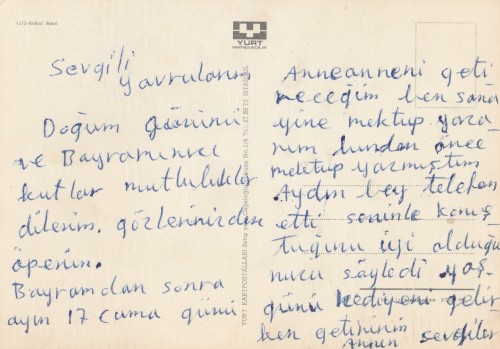 YURT
MATBAACILIK
Sevgili
yavrularım
Doğum gününü
ve Bayramınızı
kutlar mutluluklar
dilerim. gözlerinizden
öperim.
Bayramdan sonra
ayın 17 cuma günü
Anneanneni geti
receğim ben sana
yine mektup yaza
rım bundan önce
mektup yazmıştım
Aydın bey telefon
etti seninle konuş
tuğunu iyi olduğu
nuzu söyledi yaş
günü hediyeni gelir
ken getiririm
Annen sevgiler
YURT KARTPOSTALLARI